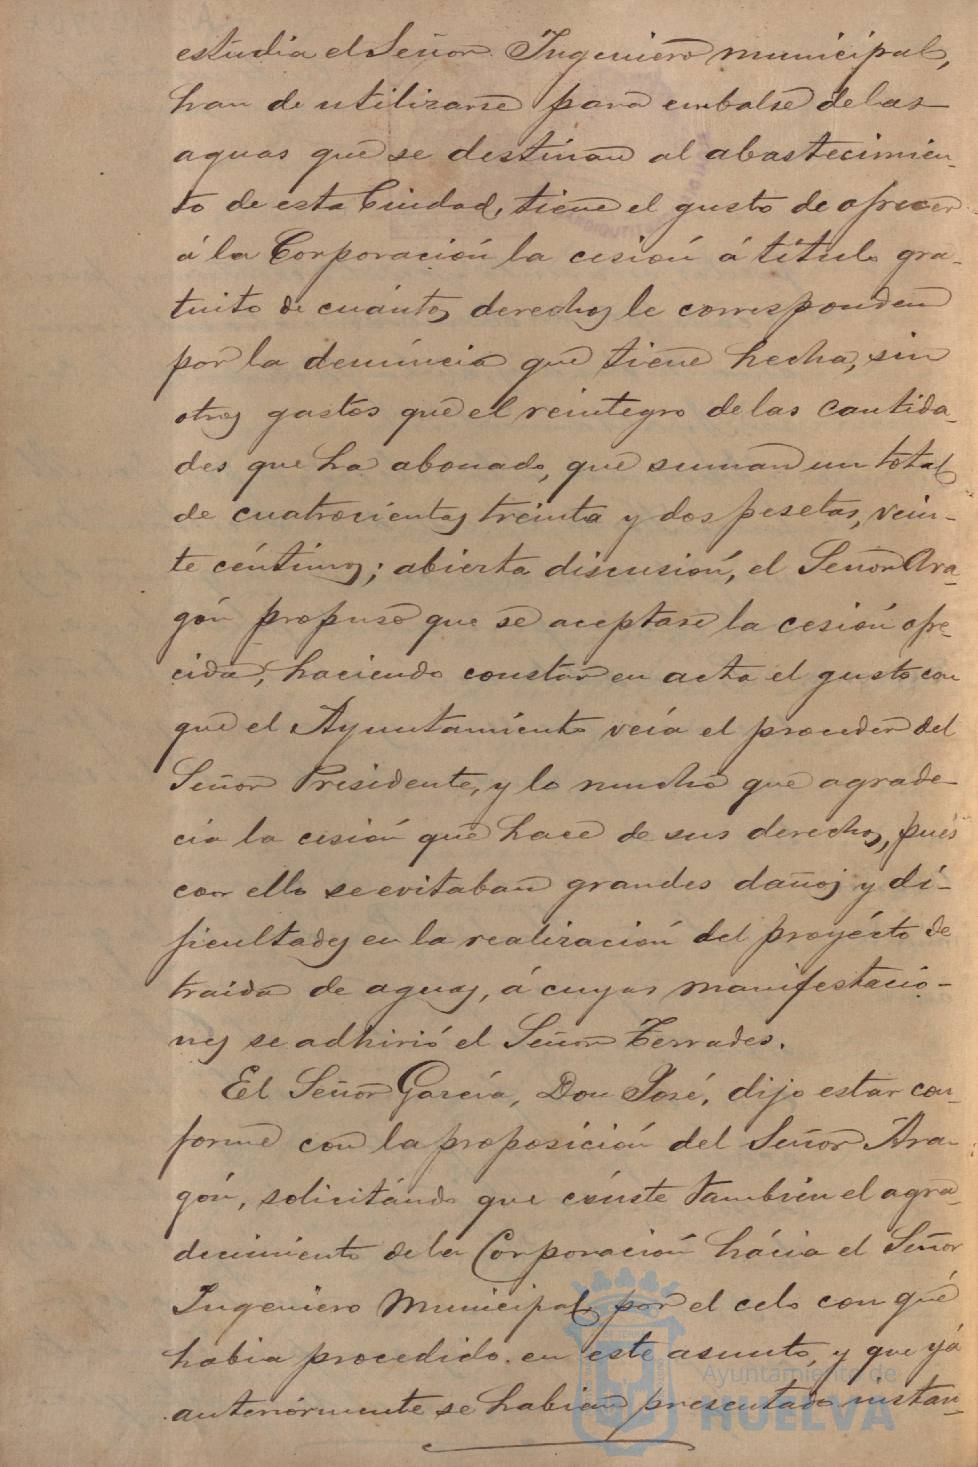 estudia el Señor Ingeniero municipal,
han de utilizarse para embalse de las
aguas que se destinan al abastecimien-
to de esta Ciudad, tiene el gusto de ofrecer
á la Corporación la cesión á título gra-
tuito de cuántos derechos le corresponden
por la denúncia que tiene hecha, sin
otros gastos que el reintegro de las cantida-
des que ha abonado, que suman un total
de cuatrocientas treinta y dos pesetas, vein-
te céntimos; abierta discusión, el Señor Ara-
gón propuso que se aceptase la cesión ofre-
cida, haciendo constar en acta el gusto con
que el Ayuntamiento veía el proceder del
Señor Presidente, y lo mucho que agrade-
cia la cesión que hace de sus derechos, pués
con ello se evitaban grandes daños y di-
ficultades en la realización del proyécto de
traida de aguas, á cuyas manifestacio-
nes se adhirió el Señor Terrades.
El Señor García, Don José, dijo estar con-
forme con la proposición del Señor Ara-
gón, solicitándo que cónste tambien el agra-
decimiento de la Corporación hácia el Señor
Ingeniero Municipal, por el celo con que
habia procedido en este asunto, y que yá
anteriórmente se habian presentado instan-
Ayuntamiento de
HUELVA